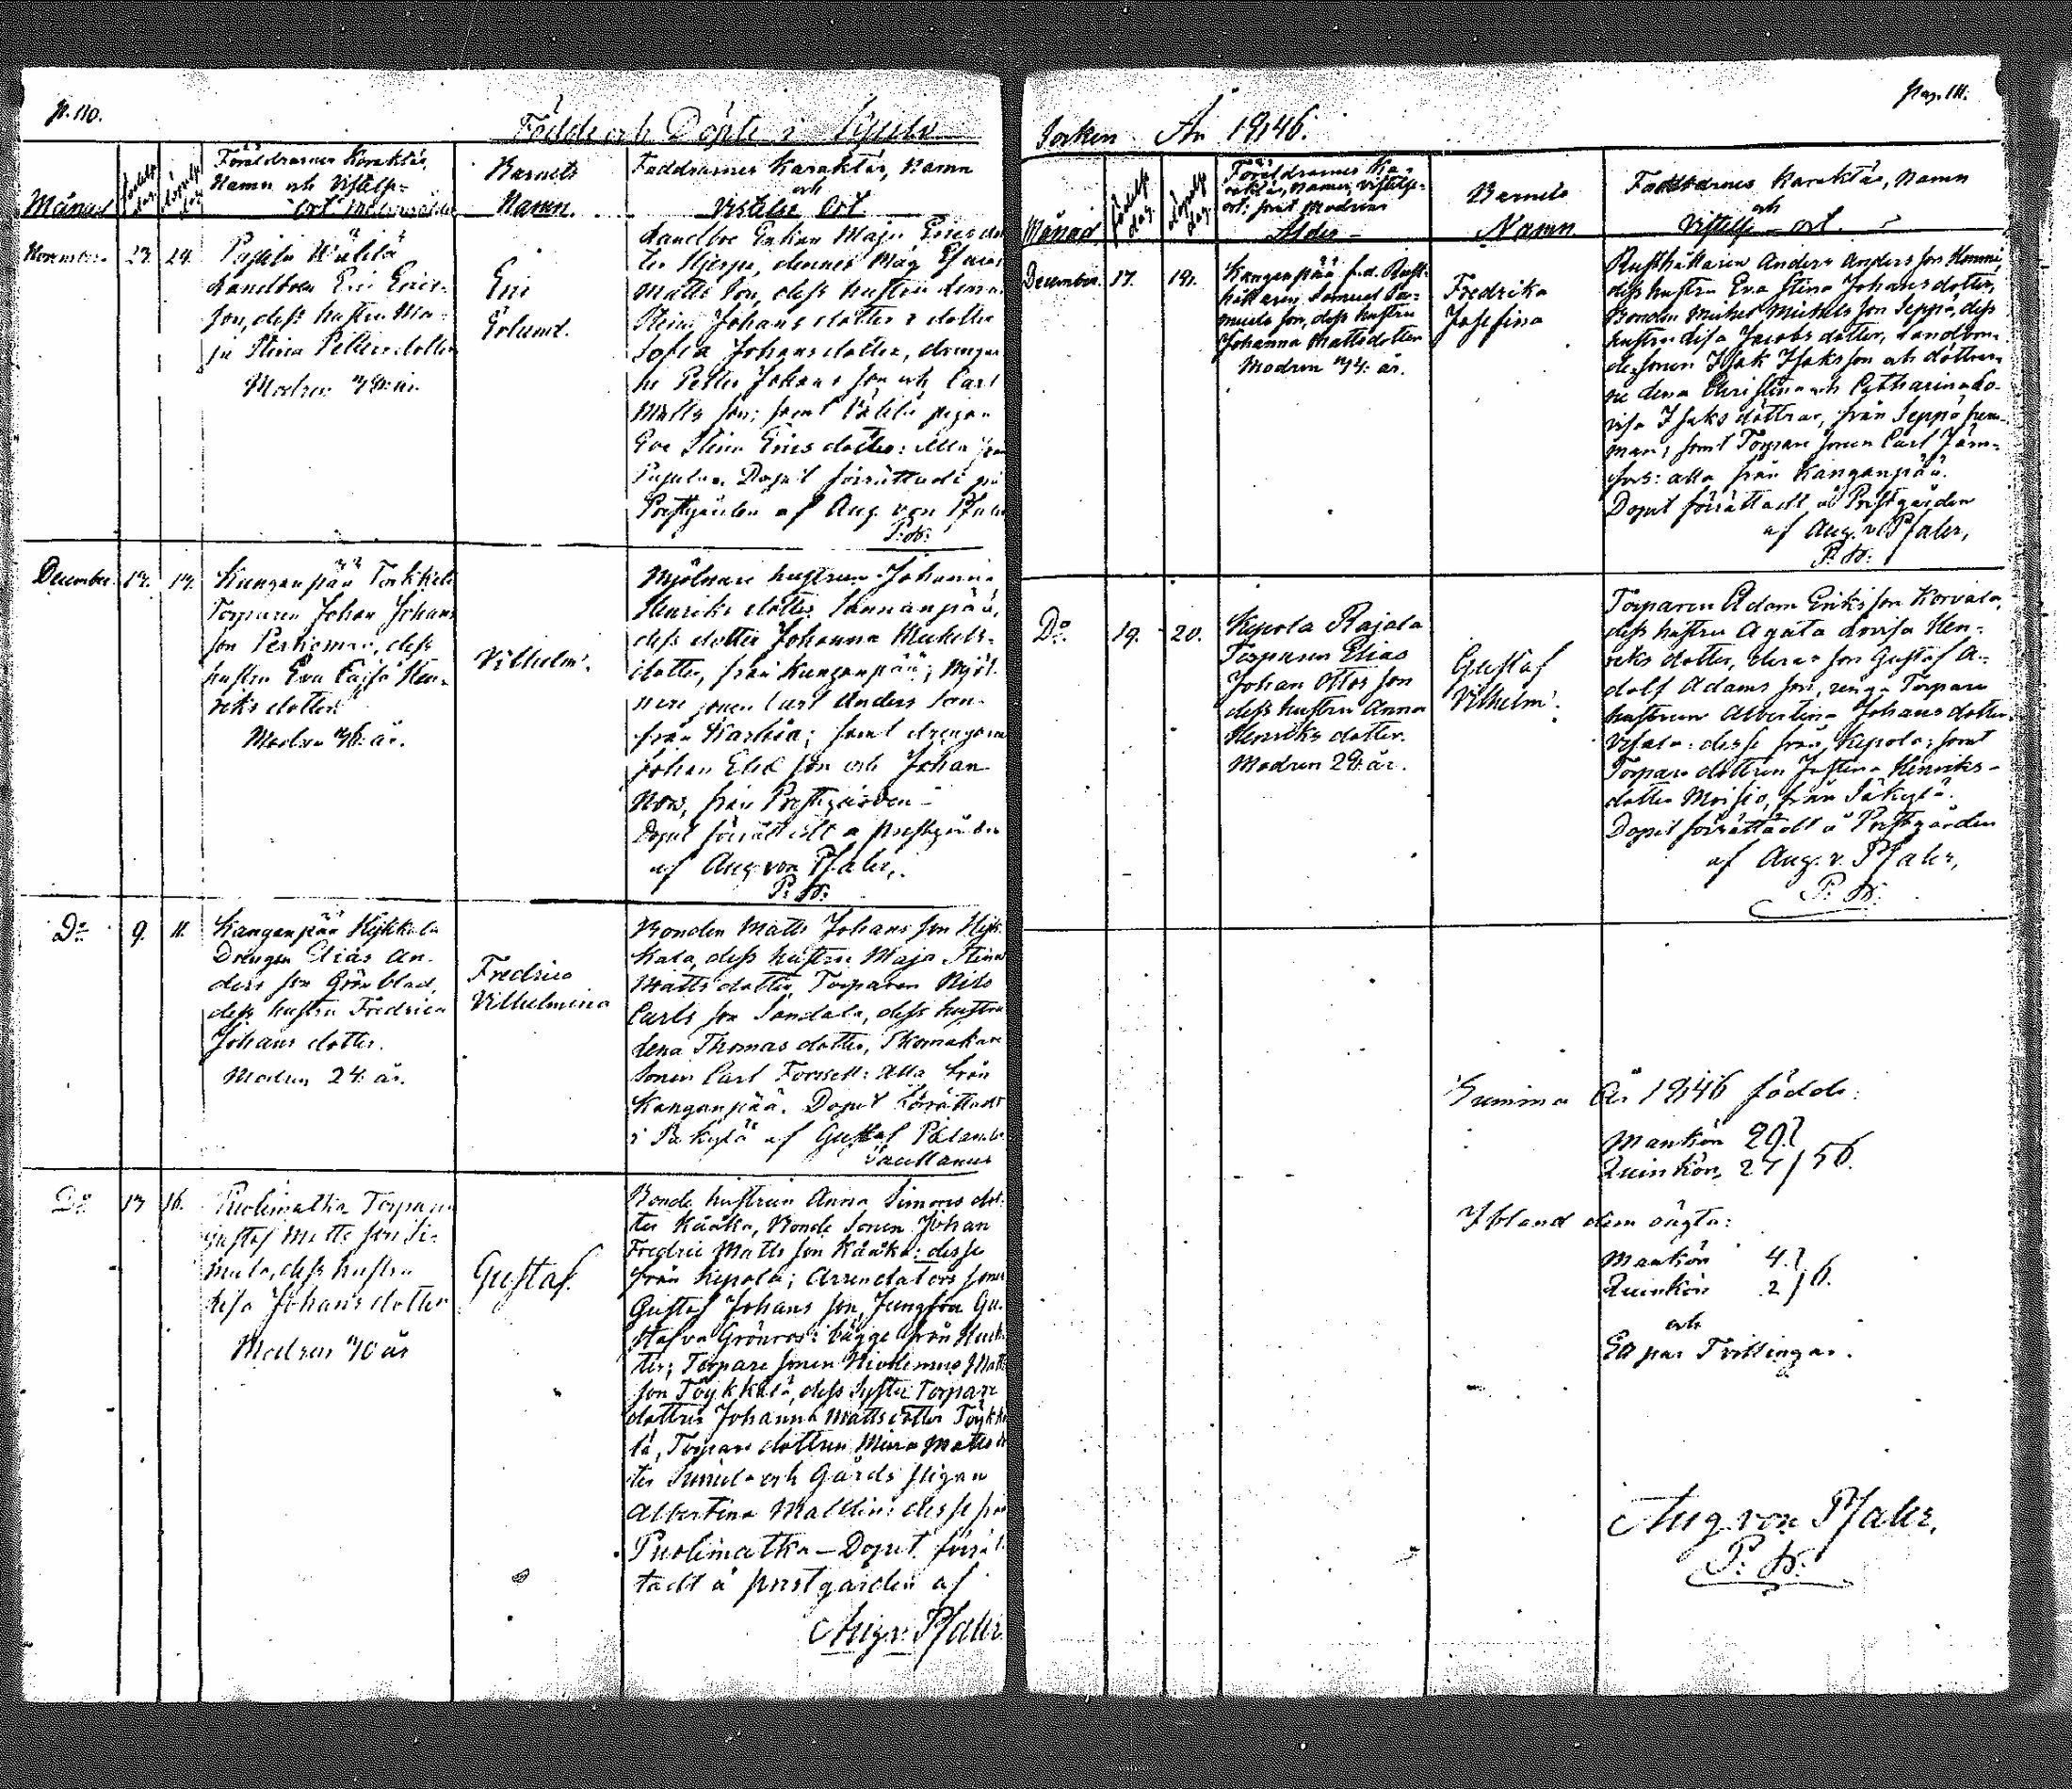 p. 110.
Födde och Döpte i
Månad
Föräldrarnes Karaktär,
Namn och Vistelse-
ort
Barnets
Namn.
Faddrarnes Karaktär, Namn
och
Vistelse Ort.
November. 23. 29.
Landboen Eric Erics-
son, dess hustru Ma-
ja Stina
Modren
Eric
Landboe Enkan Maja Erics dot-
ter
Matts Son, dess hustru Lena
Stina Johans dotter & dotter
Sofia Johansdotter, drengar-
ne Petter Johans son och Carl
Matts son; samt
Eva Stina Erics dotter: alla från
Dopet förrättadt på
Prestgården af Aug. von Pfaler
P: A:
December.
Kanganpää
Torparen Johan Johans
son
hustru Eva Caisa Hen-
riks dotter
Modren
Vilhelm.
Mjölnare hustrun Johanna
Henriks dotter Sannanpää,
dess dotter Johanna Mickels-
dotter, från Kanganpää; Mjöl-
nare sonen Carl Anders Son
från Karhia; samt drengarne
Johan Elias son och Johan
från Prestgården -
Dopet förrättadt å prestgården
af Aug. von Pfaler,
P: A:
Do 9. 11.
Kanganpää Hykkala
Drengen Elias An-
ders son Grönblad,
dess hustru Fredrica
Johans dotter.
Modren 24 år.
Fredrica
Vilhelmina
Bonden Matts Johans son Hyk-
kala, dess hustru Maja Stina
Matts dotter, Torparen Nils
Carls son Sandala, dess hustru
Lena Thomas dotter, Skomakare
Sonen Carl Forssell: alla från
Kanganpää. Dopet förrättadt
i Säkylä af Gustaf Palander
Do 13 16.
Puolimatka Torparen
Gustaf Matts son Si-
mula, dess hustru
Lisa Johans dotter
Modren 40 år
Gustaf.
Bonde hustrun Anna Simons dot-
ter Kååka, Bonde Sonen Johan
Fredric Matts son Kååka: desse
från Kepola; Arrendators sonen
Gustaf Johans son, Jungfrun Gu-
stafva Grönros: bägge från
Torpare sonen Nicodemus Matts
son Töykkälä, dess Syster Torpare
dottren Johanna Matts dotter Töykkä-
lä, Torpare dottren Mina Matts dot-
ter Simula och Gårds pigan
Albertina Malldin: desse från
Puolimatka - Dopet förrät-
tadt å prestgården af
Aug. v. Pfaler.
Pag. 111.
Socken År 1846.
Månad
Födelse
dag.
Döpelse
dag.
Föräldrarnes Ka-
raktär, Namn, Vistelse-
ort: samt Modrens
Ålder -
Barnets
Namn.
Faddrarnes Karaktär, Namn
och
Vistelse - ort.
December. 17. 19.
Kanganpää f.d. Rust-
hållaren Samuel Sa-
muels son, dess hustru
Johanna Mattsdotter
Modren 44: år.
Fredrika
Josefina
Rusthållaren Anders Anders son
dess hustru Eva Stina Johansdotter,
Bonden Michel Michels son Seppä, dess
hustru Lisa Jacobs dotter, Landbon-
de sonen Isak Isaksson och döttrar-
ne Lena Christina och Catharina Lo-
visa Isaks döttrar, från Seppä hem-
man, samt Torpare Sonen Carl Järn-
fors: alla från Kanganpää.
Dopet förrättadt å Prestgården
af Aug. v. Pfaler,
P: A:
Do. 19. 20.
Kepola Rajala
Torparen Elias
Johan Ottos son
dess hustru Anna
Henriks dotter.
Modren 28: år.
Gustaf
Vilhelm.
Torparen Adam Eriks son Korvala,
dess hustru Agata Lovisa Hen-
riks dotter, deras son Gustaf A-
dolf Adams son, unga Torpare
hustrun Albertina Johans dotter
desse från Kepola; samt
Torpare dottren Justina Henriks-
dotter Moisio, från Säkylä.
Dopet förrättadt å Prestgården
af Aug. v. Pfaler,
P: A:
Summa År 1846 födde:
Mankön 29
Quinkön 27 / 56.
Ibland dem oägta:
Mankön 4.
Quinkön 2 / 6.
och
Ett par Tvillingar.
Aug. von Pfaler.
P: A: